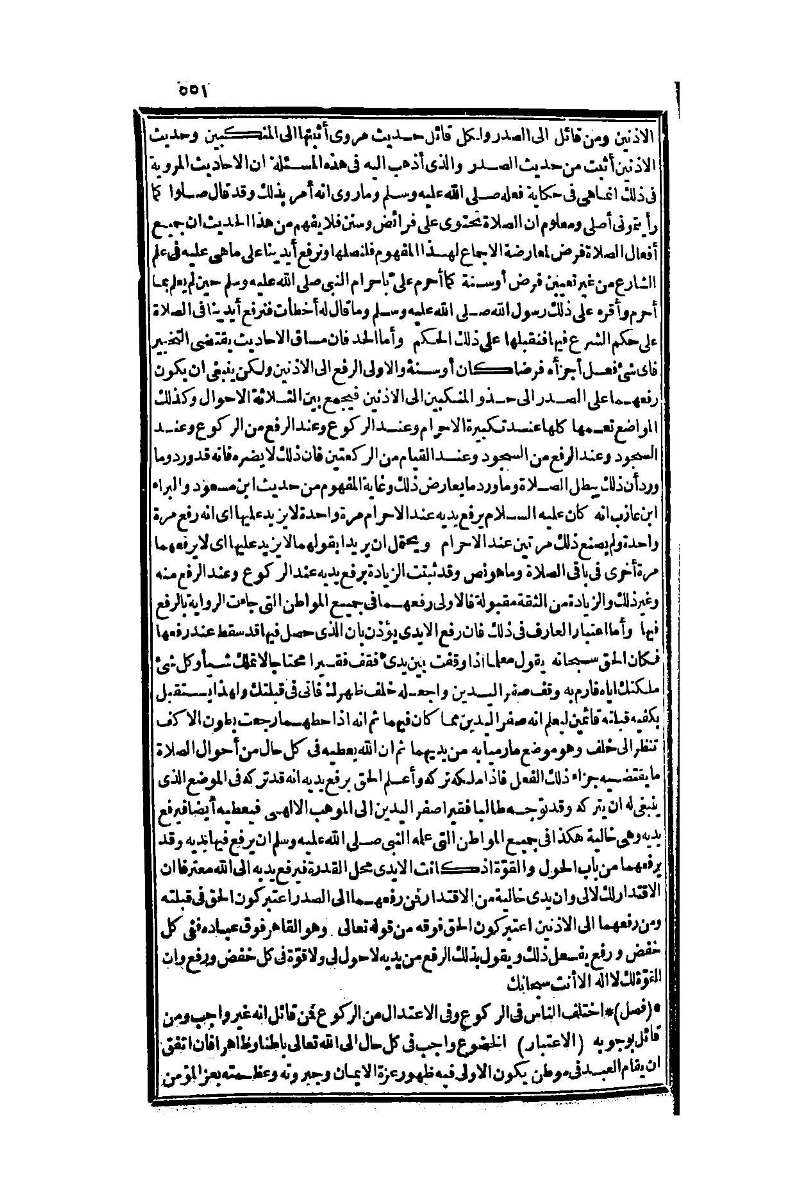 ٥٥١
الاذنين ومن قائل الى الصدر ولكل قائل حديث مروى أثبتها الى المنكبين وحديث
الاذنين أثبت من حديث الصدر والذى أذهب اليه فى هذه المسئلة ان الاحاديث المروية
فى ذلك انماهى فى حكاية فعله صلى الله عليه وسلم وماروى انه أمر بذلك وقد قال صلوا كما
رأيتمونى أصلى ومعلوم ان الصلاة تحتوى على فرائض وسنن فلايفهم من هذا الحديث ان جميع
أفعال الصلاة فرض لمعارضة الاجماع لهذا المفهوم فلنصلها ونرفع أيديناعلى ماهى عليه فى علم
الشارع من غير تعيين فرض أوسنة كماأحرم على باحرام النبى صلى الله عليه وسلم حين لم يعلم بما
أحرم وأقره على ذلك رسول الله صلى الله عليه وسلم وماقال له أخطأت فنرفع أيدينا فى الصلاة
على حكم الشرع فيها فنقبلها على ذلك الحكم وأما الحد فان مساق الاحاديث يقتضى التخيير
فاى شئ فعل أجزأه فرضا كان أوسنة والاولى الرفع الى الاذنين ولكن ينبغى ان يكون
رفعهما على الصدر الى حذو المنكبين الى الاذنين فيجمع بين الثلاثة الاحوال وكذلك
المواضع نعمها كلها عند تكبيرة الاحرام وعند الركوع وعند الرفع من الركوع وعند
السجود وعند الرفع من السجود وعند القيام من الركعتين فان ذلك لا يضره فانه قدورد وما
ورد أن ذلك يبطل الصلاة وماورد مايعارض ذلك وغاية المفهوم من حديث ابن مسعود والبراء
ابن عازب انه كان عليه السلام يرفع يديه عند الاحرام مرة واحدة لايزيد عليها اى انه رفع مرة
واحدة ولم يصنع ذلك مرتين عند الاحرام ويحتمل ان يريدا بقولهما لايزيد عليها اى لا يرفعهما
مرة أخرى فى باقى الصلاة وماهونص وقد ثبتت الزيادة برفع يديه عند الركوع وعند الرفع منه
وغير ذلك والزيادة من الثقة مقبولة فالاولى رفعهما فى جميع المواطن التى جاءت الرواية بالرفع
فيها وأما اعتبار العارف فى ذلك فان رفع الايدى يؤذن بان الذى حصل فيها قد سقط عند رفعها
فكان الحق سبحانه يقول معلما اذا وقفت بين يدى فقف فقيرا محتاجا لاتملك شيأ وكل شئ
ملكتك اياه فارم به وقف صفر اليدين واجعله خلف ظهرك فانى فى قبلتك ولهذا يستقبل
بكفيه قبلته قائمين ليعلم انه صفر اليدين مما كان فيهما ثم انه اذا حطهما رجعت بطون الاكف
تنظر الى خلف وهو موضع مارميابه من يديهما ثم ان الله يعطيه فى كل حال من أحوال الصلاة
مايقتضيه جزاء ذلك الفعل فاذا ملكه تركه وأعلم الحق برفع يديه انه قد تركه فى الموضع الذى
ينبغى له ان يتركه وقد توجه طالبا فقيرا صفر اليدين الى الموهب الالهى فيعطيه أيضا فيرفع
يديه وهى خالية هكذا فى جميع المواطن التى علمه النبى صلى الله عليه وسلم ان يرفع فيها يديه وقد
يرفعهما من باب الحول والقوة اذ كانت الايدى محل القدرة فيرفع يديه الى الله معترفا ان
الاقتدار لك لالى وان يدى خالية من الاقتدار فمن رفعهما الى الصدر اعتبر كون الحق فى قبلته
ومن رفعهما الى الاذنين اعتبر كون الحق فوقه من قوله تعالى وهو القاهر فوق عباده ففى كل
خفض ورفع يفعل ذلك ويقول بذلك الرفع من يديه لاحول لى ولاقوة فى كل خفض ورفع وان
القوة لك لااله الاأنت سبحانك
*(فصل)* اختلف الناس فى الركوع وفى الاعتدال من الركوع فمن قائل انه غير واجب ومن
قائل بوجوبه (الاعتبار) الخضوع واجب فى كل حال الى الله تعالى باطنا وظاهرا فان اتفق
ان يقام العبد فى موطن يكون الاولى فيه ظهور عزة الايمان وجبروته وعظمته بعز المؤمن